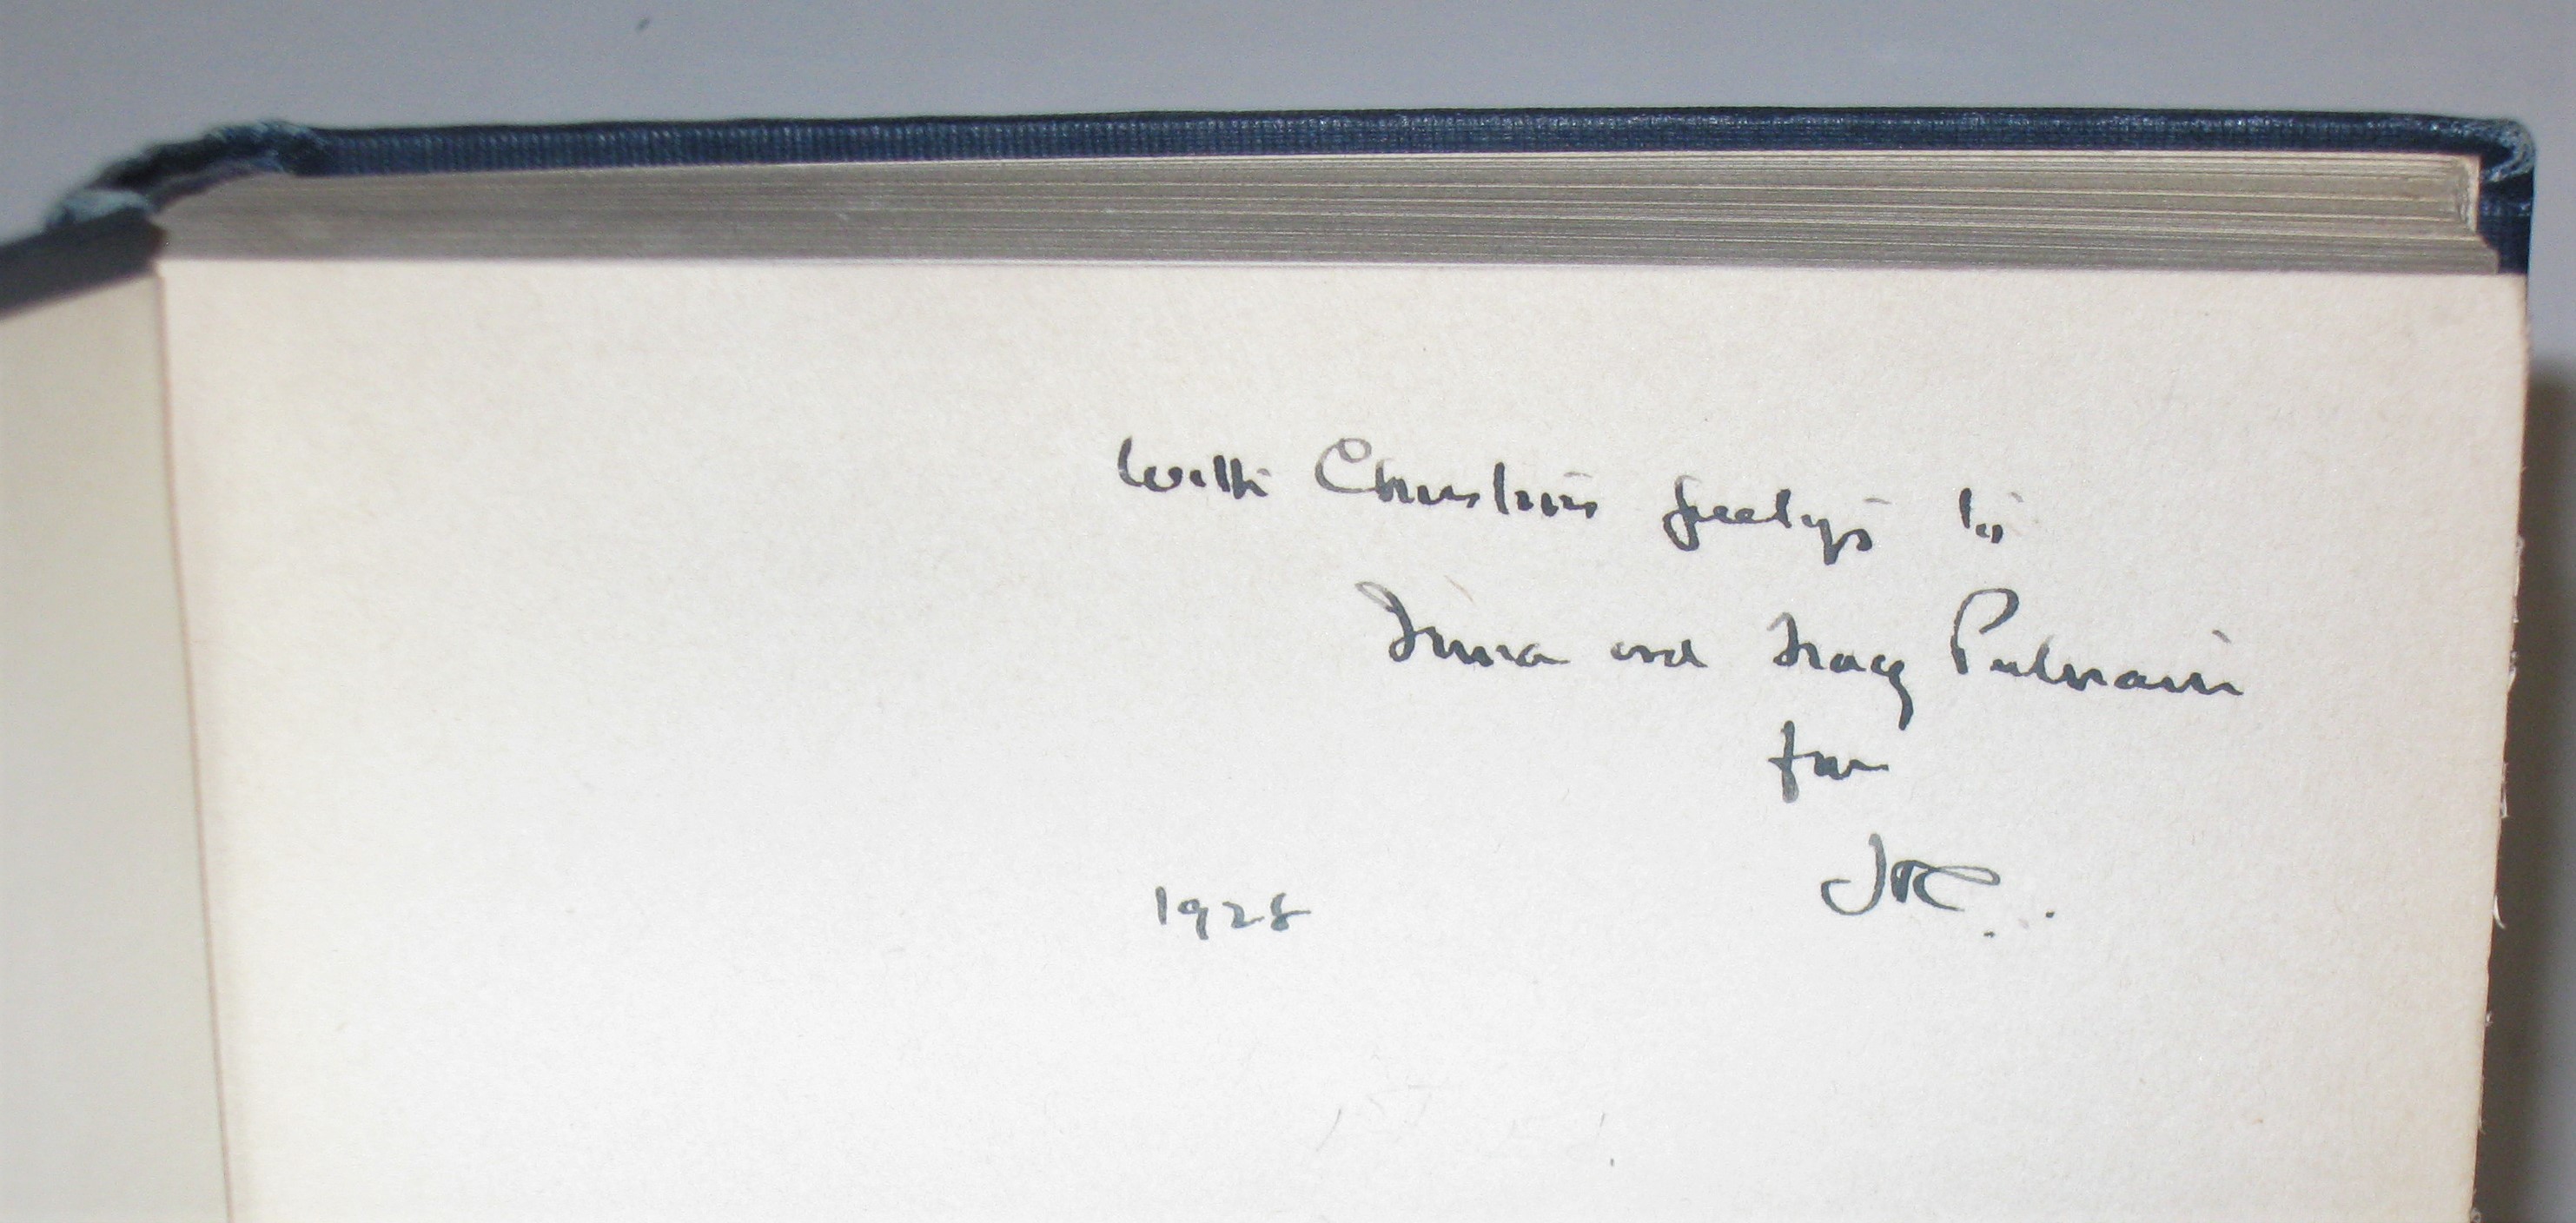 With Christmas greetings to
Irma and Tracy Putnam
from
JTC.
1928